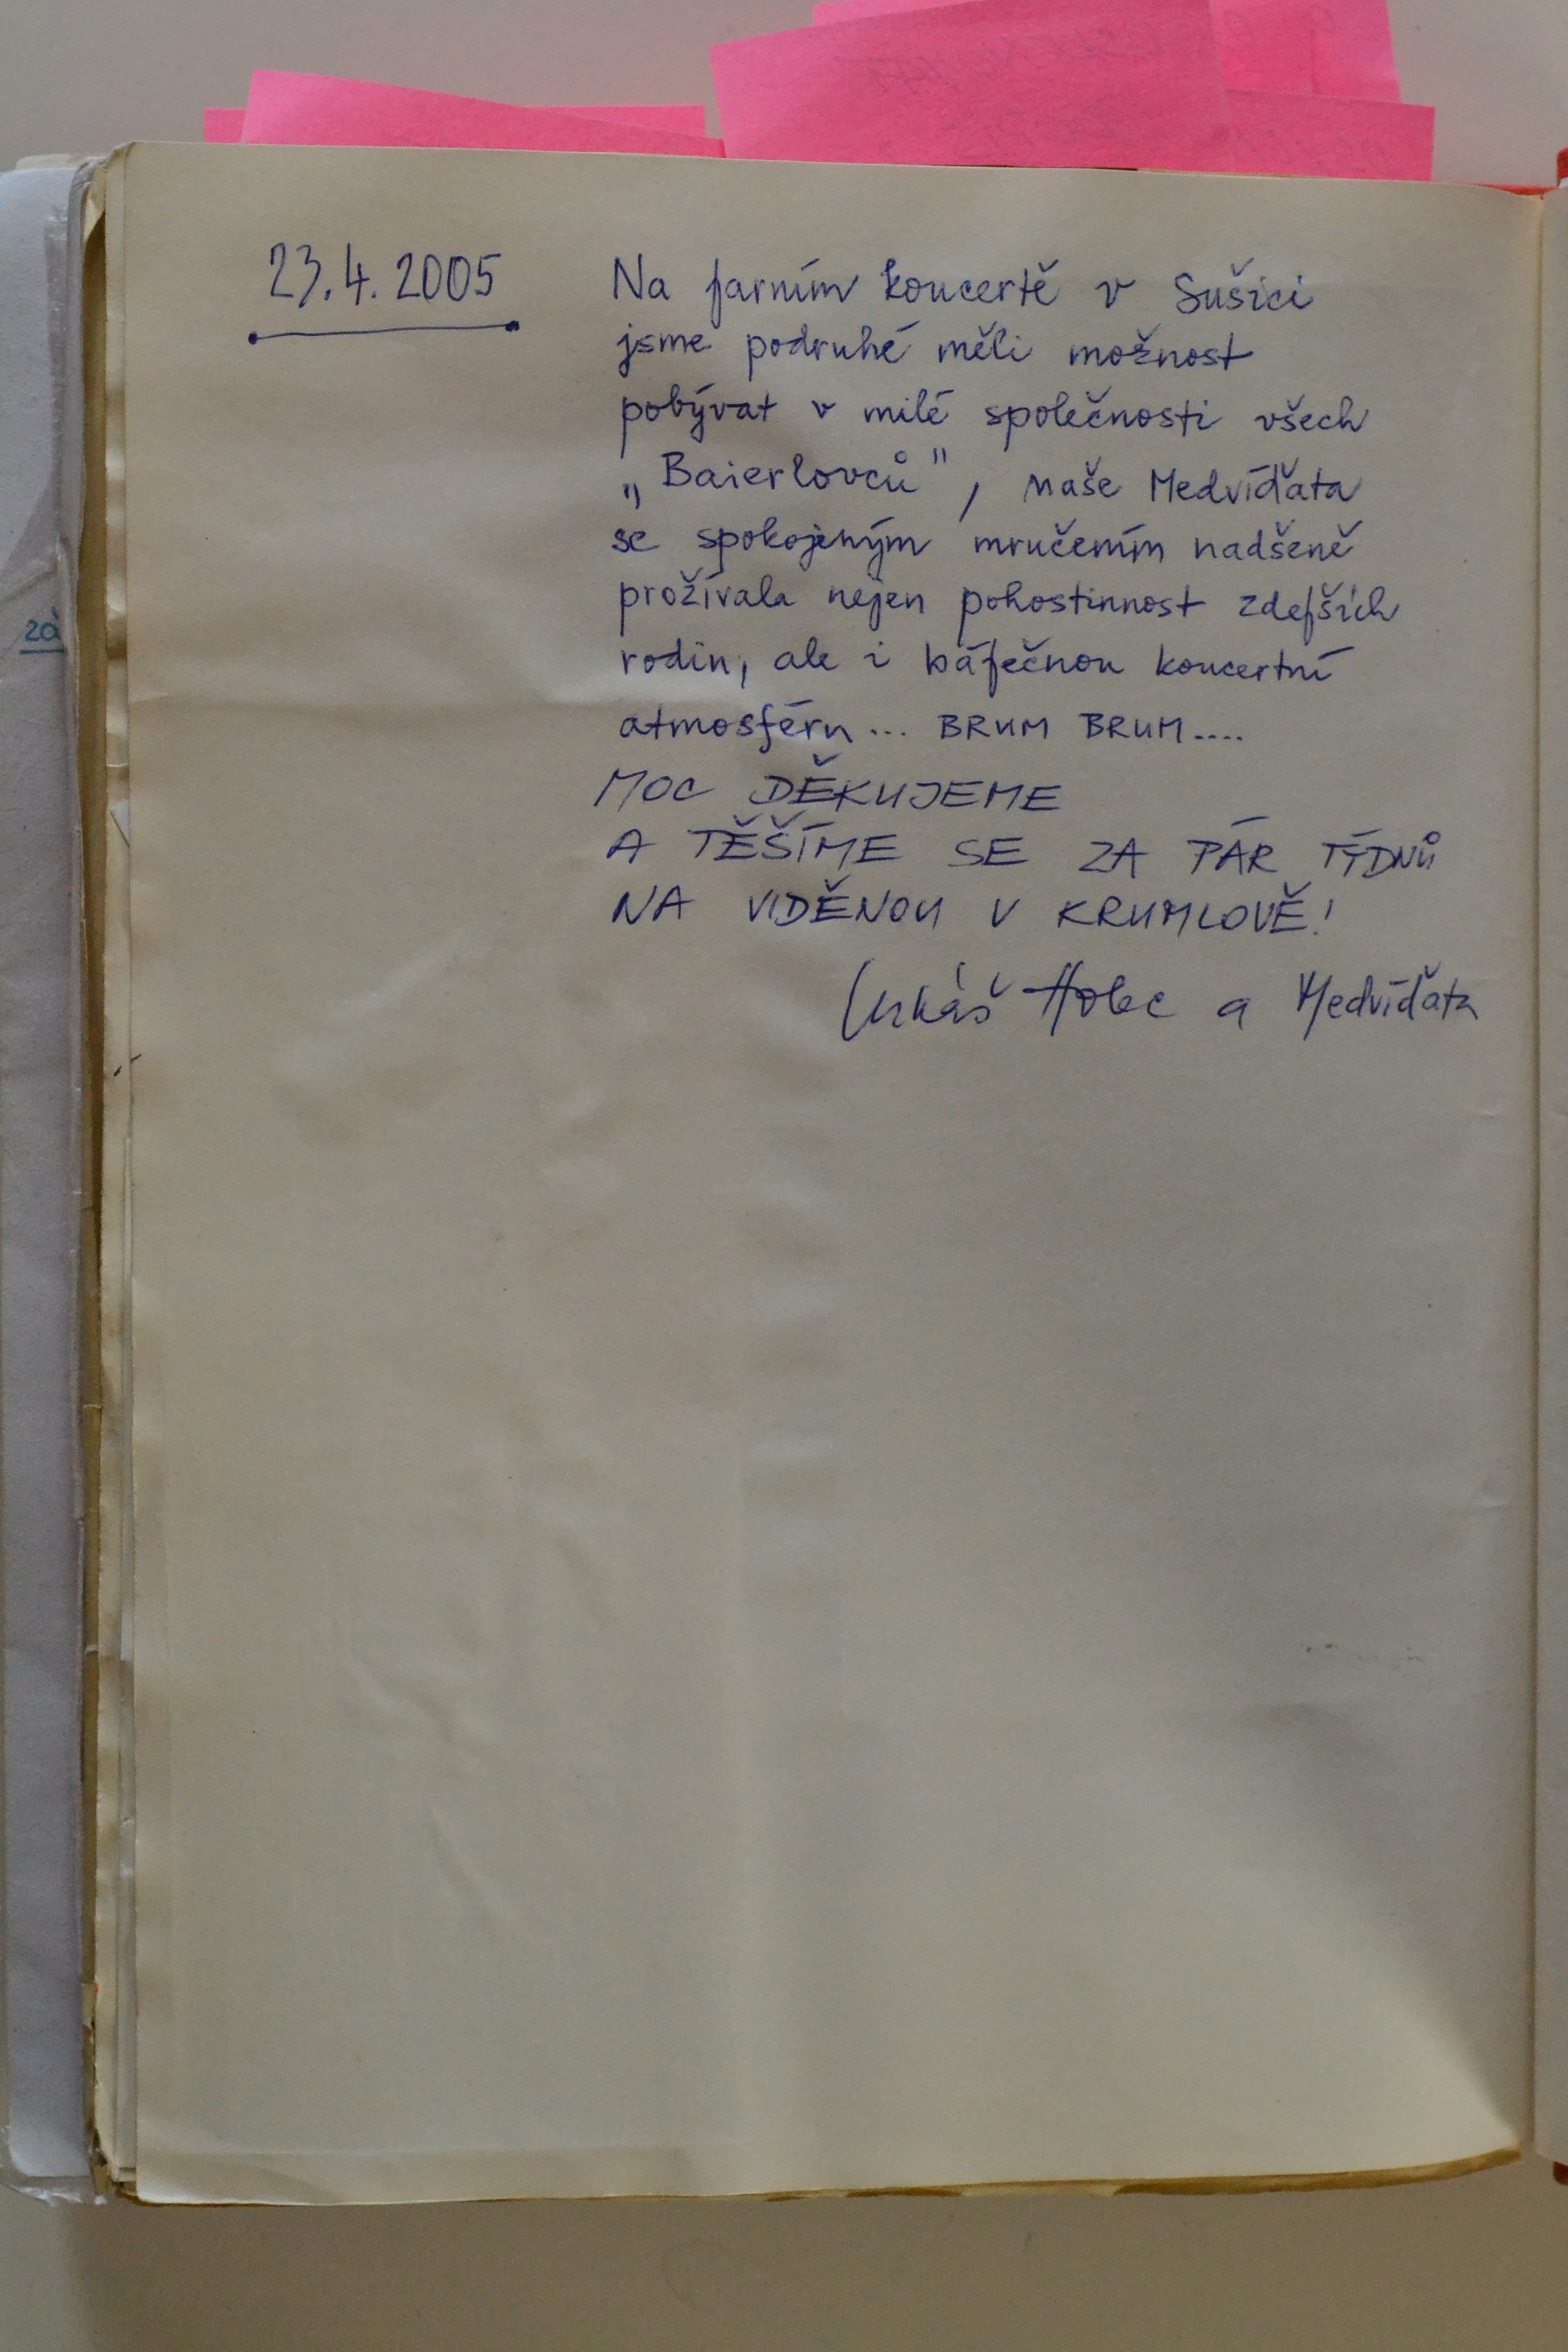 23.4.2005
Na farním koncertě v Sušici
jsme podruhé měli možnost
pobývat v milé společnosti všech
„Baierlovců", naše Medvíďata
se spokojeným mručením nadšeně
prožívala nejen pohostinnost zdejších
rodin, ale i báječnou koncertní
atmosféru... BRUM BRUM....
MOC DĚKUJEME
A TĚŠÍME SE ZA PÁR TÝDNŮ
NA VIDĚNOU V KRUMLOVĚ!
Lukáš Holec a Medvíďata
zá